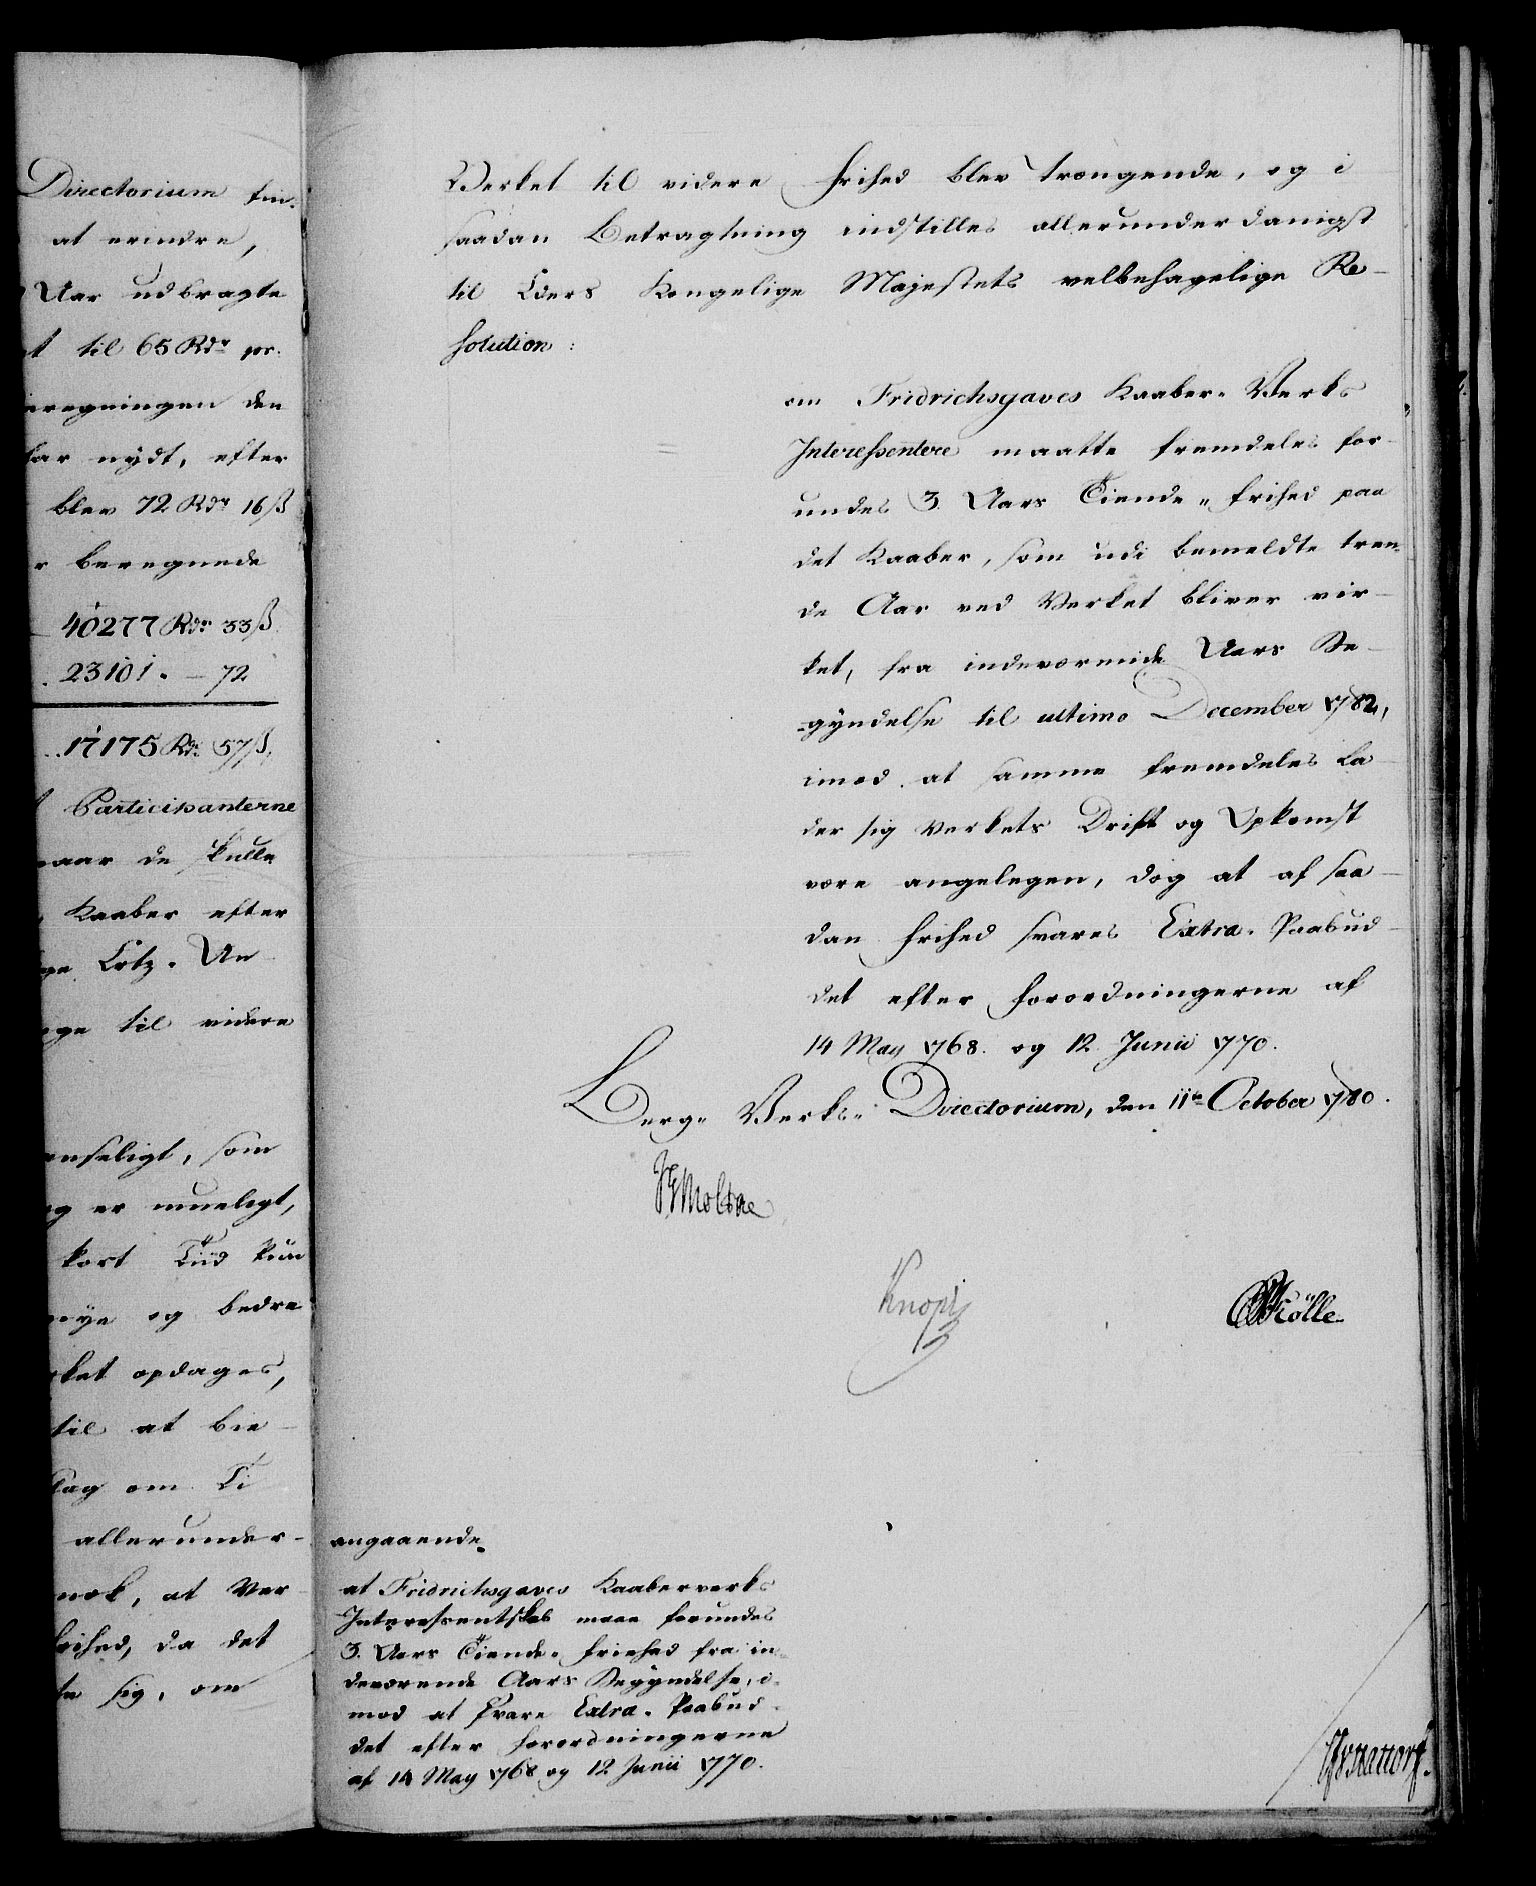 Directorium fin-
at erindre,
Aar udbragte
til 65 Rdr pr.
beregningen den
har nydt, efter
blev 72 Rdr 16 ß
beregnede
40277 Rdr 33 ß
23101. — 72
17175 Rdr 57 ß.
Participanterne
naar de skulle
Kaaber efter
Ertz. An-
til videre
som
er mueligt,
kort Tiid kun
nye og bedre
opdages,
til at bie
om Ti
allerunder-
nok, at Ver
frihed, da det
sig, om
Verket til videre Frihed blev trængende, og i
saadan Betragtning indstilles allerunderdanigst
til Eders Kongelige Majestets velbehagelige Re-
solution:
om Fridrichsgaves Kaaber-Verks
Interessentere maatte fremdeles for-
undes 3 Aars Tiende-Frihed paa
det Kaaber, som udi bemeldte tren-
de Aar ved Verket bliver vir-
ket, fra indeværende Aars Be-
gyndelse til ultimo December 1782,
imod at samme fremdeles la-
der sig Verkets Drift og Opkomst
være angelegen, dog at af saa-
dan Frihed svares Extra-Paabud-
det efter Forordningerne af
14 May 1768. og 12 Junii 1770.
Berg-Verks-Directorium, den 11te October 1780.
Moltke
Knoph
Kölle
angaaende
at Fridrichsgaves Kaaberverks
Interessentskab maae forundes
3. Aars Tiende-Friehed fra in-
deværende Aars Begyndelse, i-
mod at svare Extra-Paabud-
det efter Forordningerne
af 14 May 1768 og 12 Junii 1770.